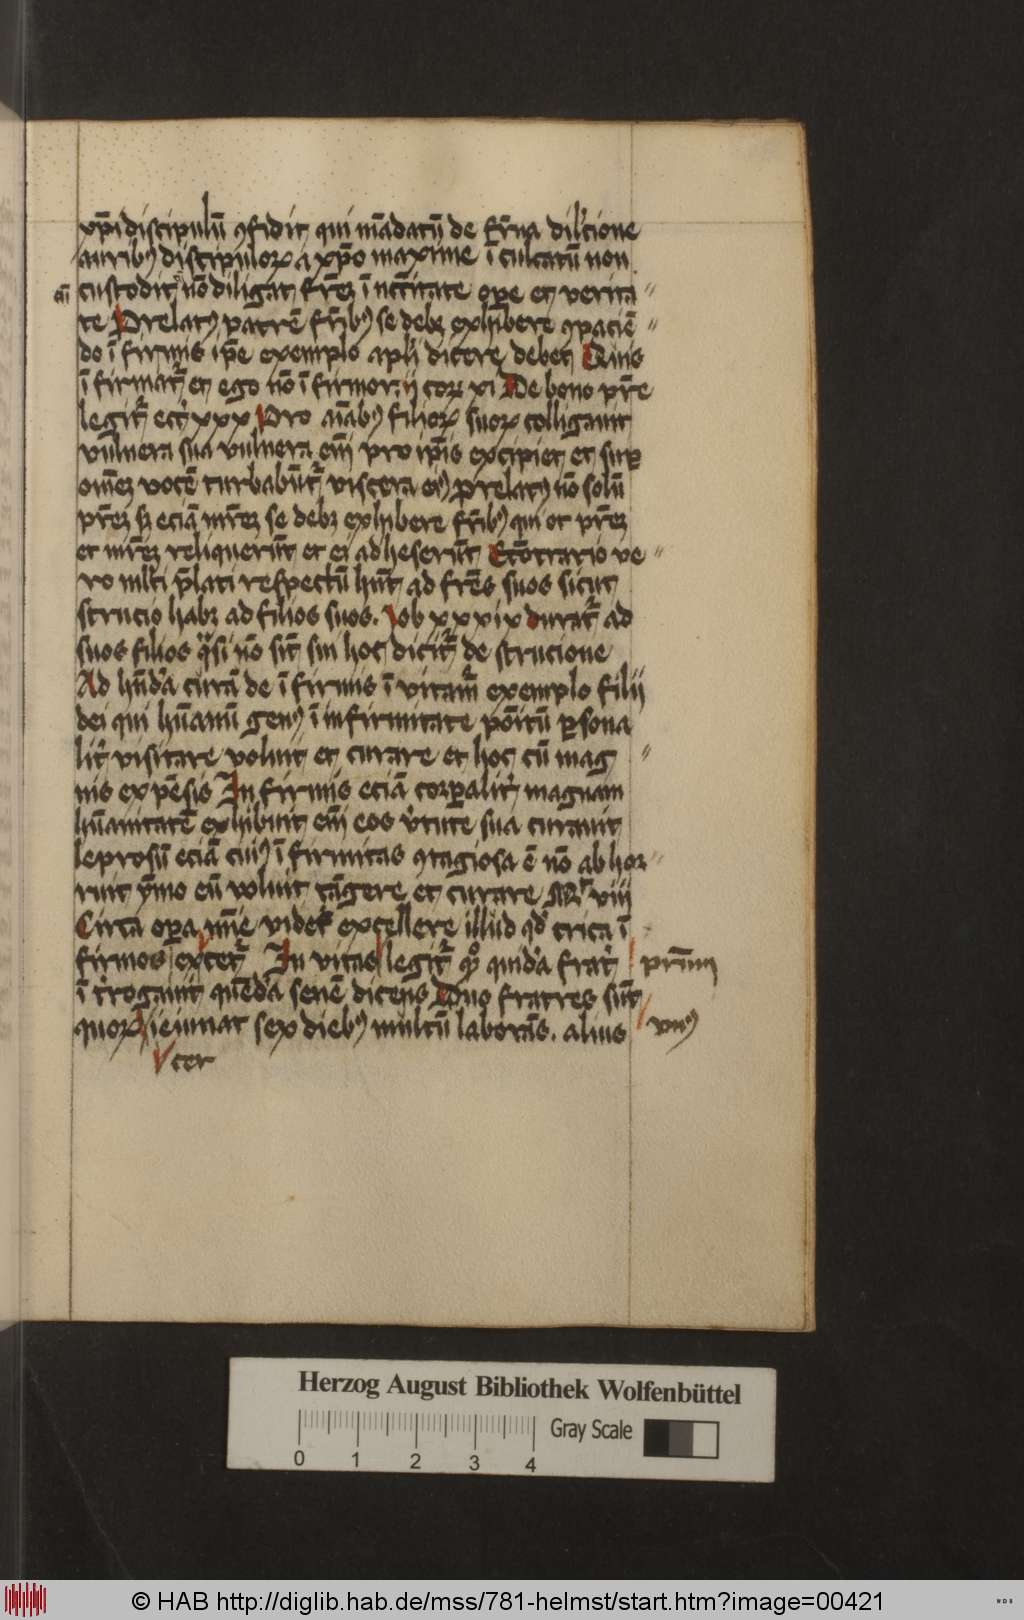 xp̄i discipulū ꝯfidit qui mādatū de fr̄na dilc̄ione
aurib⁹ discipuloꝝ a xp̄o maxime ī culcatū non
cū custodit nō diligat fr̄eꝫ ī nc̄c̄itate oꝑe et verita
te Prelat⁹ patrē fr̄ib⁹ se debꝫ exhibere ꝯpaciē
do ī firmis ip̄e exemplo apl̄i dicere debet Quis
ī firmat᷑ et ego nō ī firmor ij coꝝ xi De bono pr̄e
legit᷑ xxx Pro aīab⁹ filioꝝ suoꝝ colligaint
vulnera sua vulnera em̄ pro ip̄is excipiet et suꝑ
om̄eꝫ vocē turbabūt᷑ viscera ei⁹ prelat⁹ nō solū
pr̄eꝫ sꝫ eciā mr̄eꝫ se debꝫ exhibere fr̄ib⁹ qui et pr̄eꝫ
et mr̄eꝫ reliquerūt et ei adheserūt Ecōtrario ve
ro ml̄ti p̄lati respectū hn̄t ad fr̄es suos sicut
strucio habꝫ ad filios suos. Job xxxix durat᷑ ad
suos filios q̄si nō sīt sui hoc dicit᷑ de strucione
Ad hn̄dā curā de ī firmis ī vitam᷑ exemplo filij
dei qui hūanū gen⁹ ī infirmitate po̅itū ꝑsona
lit᷑ visitare voluit et curare et hoc cū mag
nis expēsis In firmis eciā corꝑalit᷑ magnam
hūanitatē exhibuit em̄ eos v̓tute sua curauit
leprosū eciā cui⁹ ī firmitas ꝯtagiosa ē nō ab hor
ruit ymo eū voluit tāgere et curare Mr̄ viij
Circa oꝑa mīe videt᷑ excellere illud qd̓ circa ī
firmos excet᷑ In vitas legit᷑ ꝙ quidā frat᷑ primū
ī t̓rogauit quēdā senē dicens Duo fratres sūt
quoꝝ ieiunat sex dieb⁹ multū laborās. alius vn⁹
ter
Herzog August Bibliothek Wolfenbüttel
Gray Scale
0 1 2 3 4
© HAB http://diglib.hab.de/mss/781-helmst/start.htm?image=00421